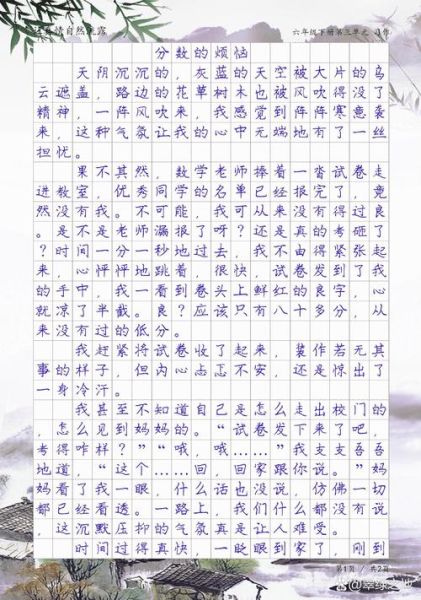 让真情自然流露
六年级下册第三单元 习作
分数的烦恼
天阴沉沉的，灰蓝的天空被大片的乌
云遮盖，路边的花草树木也被风吹得没了
精神，一阵风吹来，我感觉到阵阵寒意袭
来，这种气氛让我的心中无端地有了一丝
担忧。
果不其然，数学老师捧着一沓试卷走
进教室，优秀同学的名单已经报完了，竟
然没有我。不可能，我可从来没有得过良
。是不是老师漏报了呀？还是真的考砸了
？时间一分一秒地过去，我不由得紧张起
来，心怦怦地跳着，很快，试卷发到了我
的手中，我一看到卷头上鲜红的良字，心
就凉了半截。良？应该只有八十多分，从
来没有过的低分。
我赶紧将试卷收了起来，装作若无其
事的样子，但内心忐忑不安，还是惊出了
一身冷汗。
我甚至不知道自己是怎么走出校门的
，怎么见到妈妈的。“试卷发下来了吧，
考得咋样？”“哦，哦……”我支支吾吾
地道，“这个……回，回家跟你说。”妈
妈看了我一眼，什么话也没说，仿佛一切
都已经看透。一路上，我们什么都没有说
，这沉默压抑的气氛真是让人难受。
时间过得真快，一眨眼到家了，刚到
第1页 / 共2页